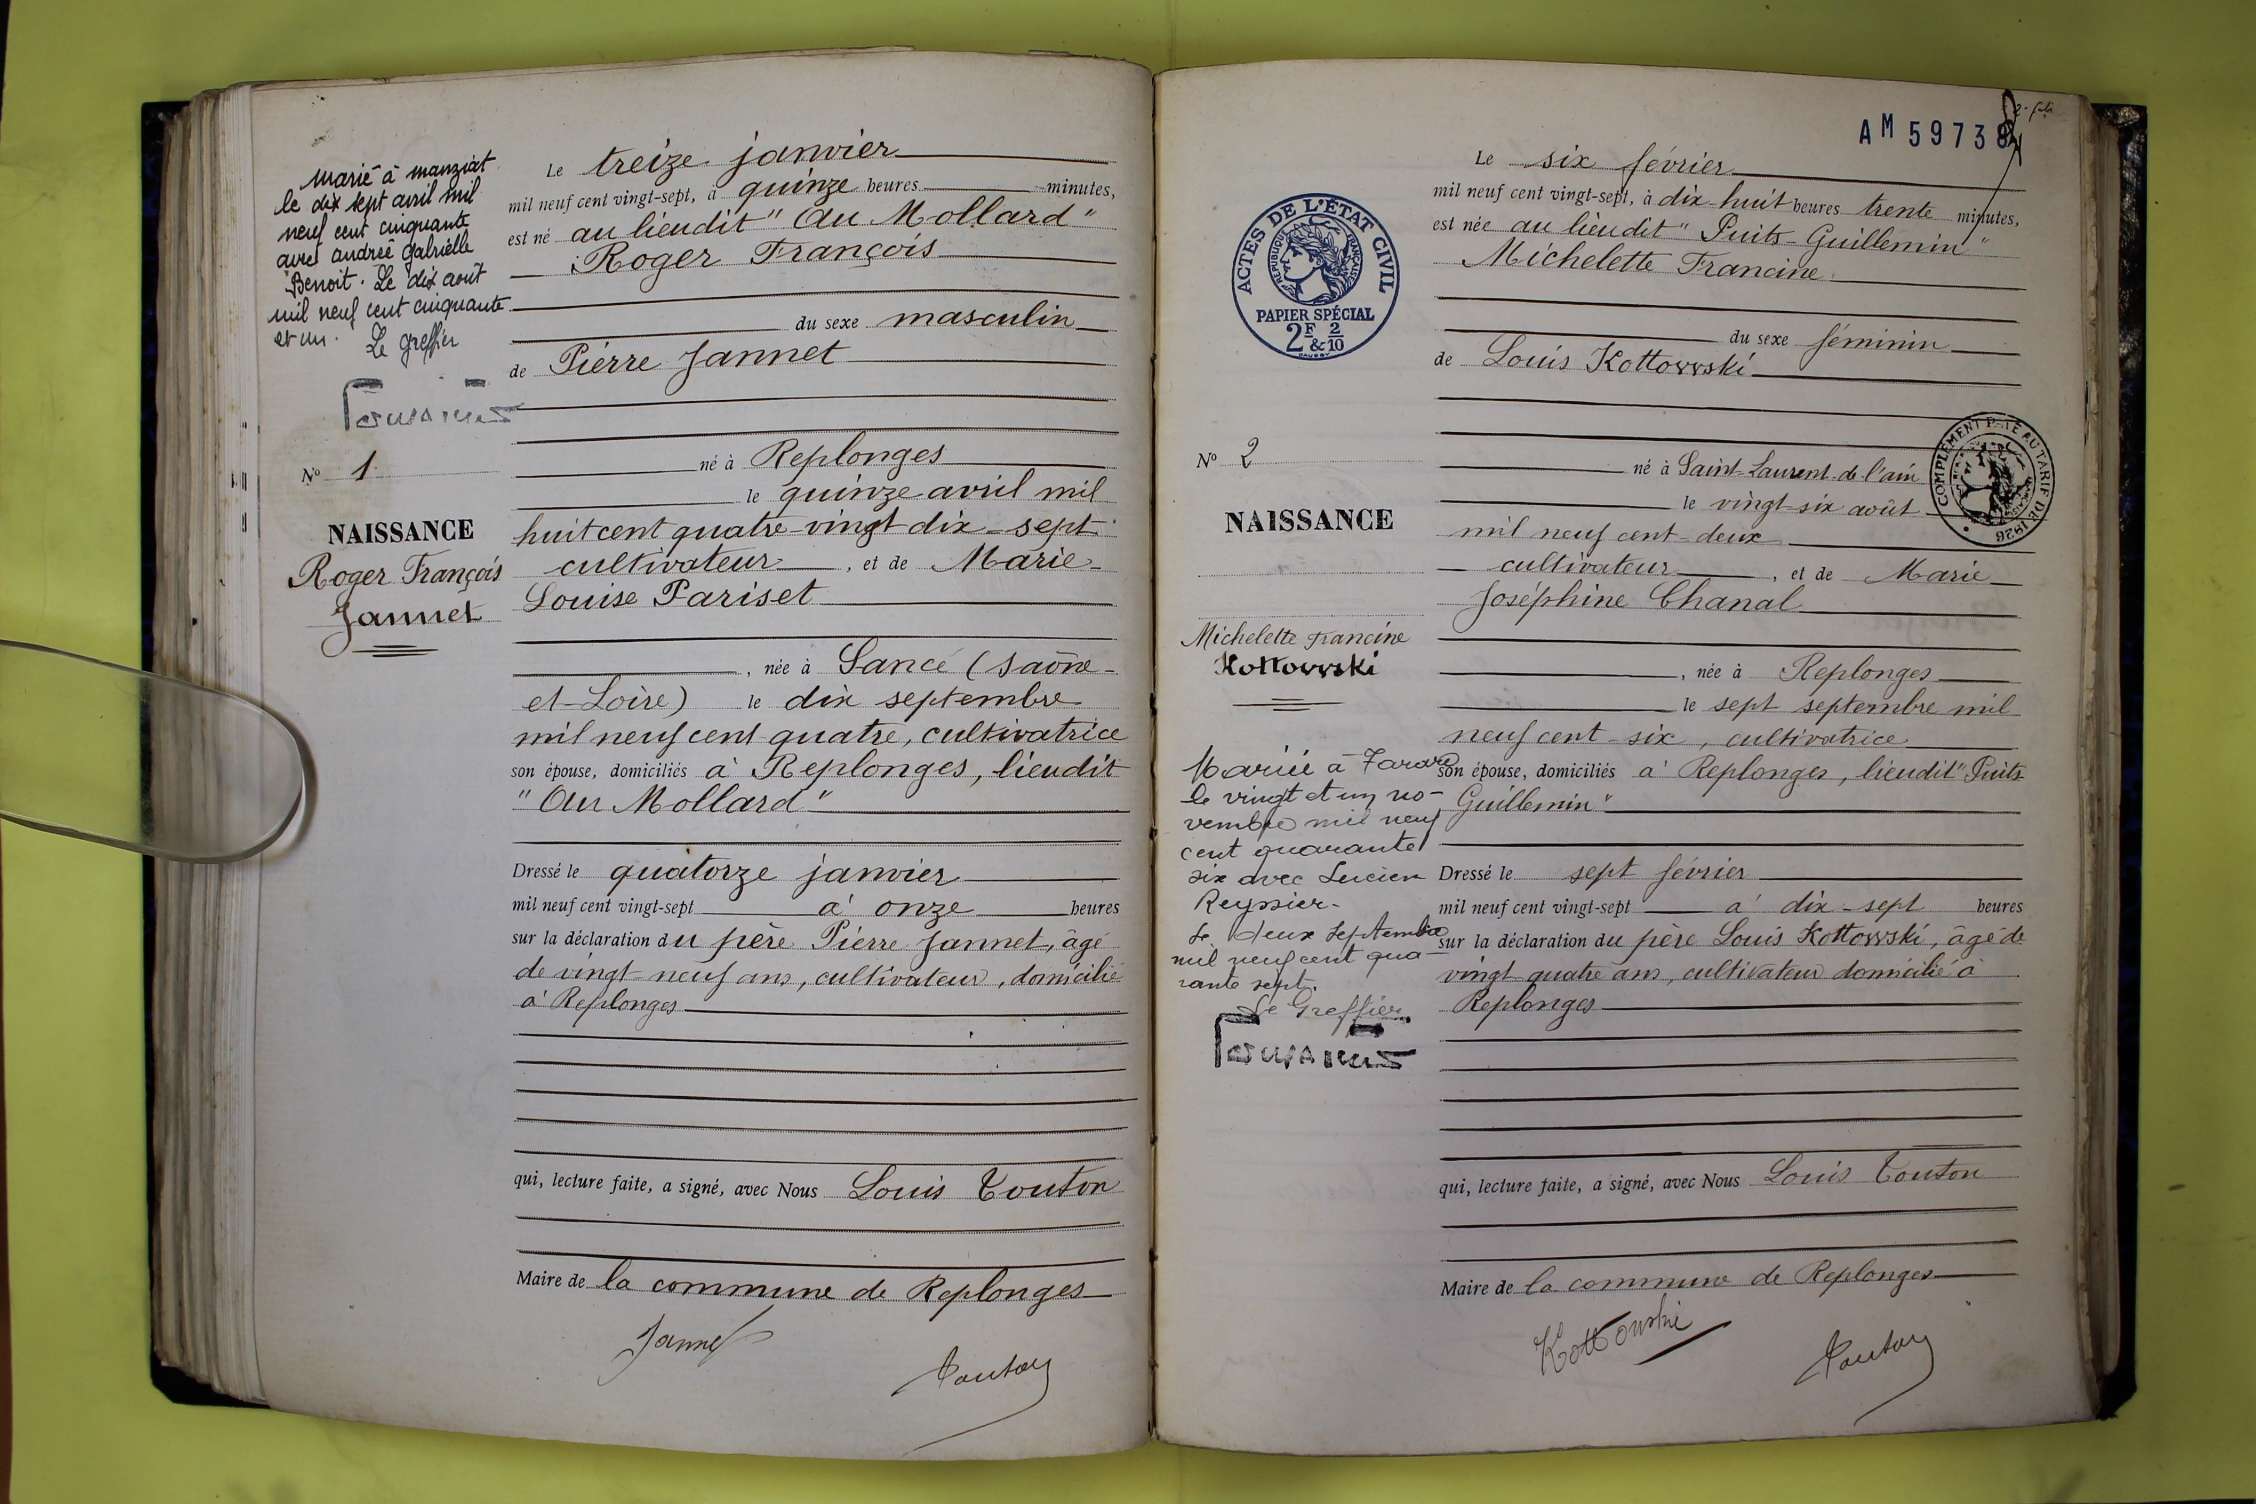 Marié à Manziat
le dix sept avril mil
neuf cent cinquante
avec Andrée Gabrielle
Benoit. Le dix août
mil neuf cent cinquante
et un. Le greffier
N° 1
NAISSANCE
Roger François
Jannet
Le treize janvier
mil neuf cent vingt-sept, à quinze heures minutes,
est né au lieudit "Au Mollard"
Roger François
du sexe masculin
de Pierre Jannet
né à Replonges
le quinze avril mil
huit cent quatre-vingt dix-sept
cultivateur, et de Marie-
Louise Pariset
, née à Sancé (Saône-
et-Loire) le dix septembre
mil neuf cent quatre, cultivatrice
son épouse, domiciliés à Replonges, lieudit
"Au Mollard"
Dressé le quatorze janvier
mil neuf cent vingt-sept à onze heures
sur la déclaration du père Pierre Jannet, âgé
de vingt-neuf ans, cultivateur, domicilié
à Replonges
qui, lecture faite, a signé, avec Nous Louis Touton
Maire de la commune de Replonges
Jannet
Touton
AM 59738
ACTES DE L'ÉTAT CIVIL
RÉPUBLIQUE FRANÇAISE
PAPIER SPÉCIAL
2F & 2/10
COMPLÉMENT DE TÉ AU TARIF DE 1926
N° 2
NAISSANCE
Michelette Francine
Kottowski
Mariée à Tarare
le vingt et un no-
vembre mil neuf
cent quarante
six avec Lucien
Reyssier.
Le deux septembre
mil neuf cent qua-
rante sept.
Le Greffier
Le six février
mil neuf cent vingt-sept, à dix-huit heures trente minutes,
est née au lieudit "Puits-Guillemin"
Michelette Francine
du sexe féminin
de Louis Kottowski
né à Saint-Laurent-de l'ain
le vingt-six août
mil neuf cent-deux
cultivateur, et de Marie
Joséphine Chanal
, née à Replonges
le sept septembre mil
neuf cent-six, cultivatrice
son épouse, domiciliés à Replonges, lieudit "Puits
Guillemin"
Dressé le sept février
mil neuf cent vingt-sept à dix-sept heures
sur la déclaration du père Louis Kottowski, âgé de
vingt quatre ans, cultivateur domicilié à
Replonges
qui, lecture faite, a signé, avec Nous Louis Touton
Maire de la commune de Replonges
Kottowski
Touton